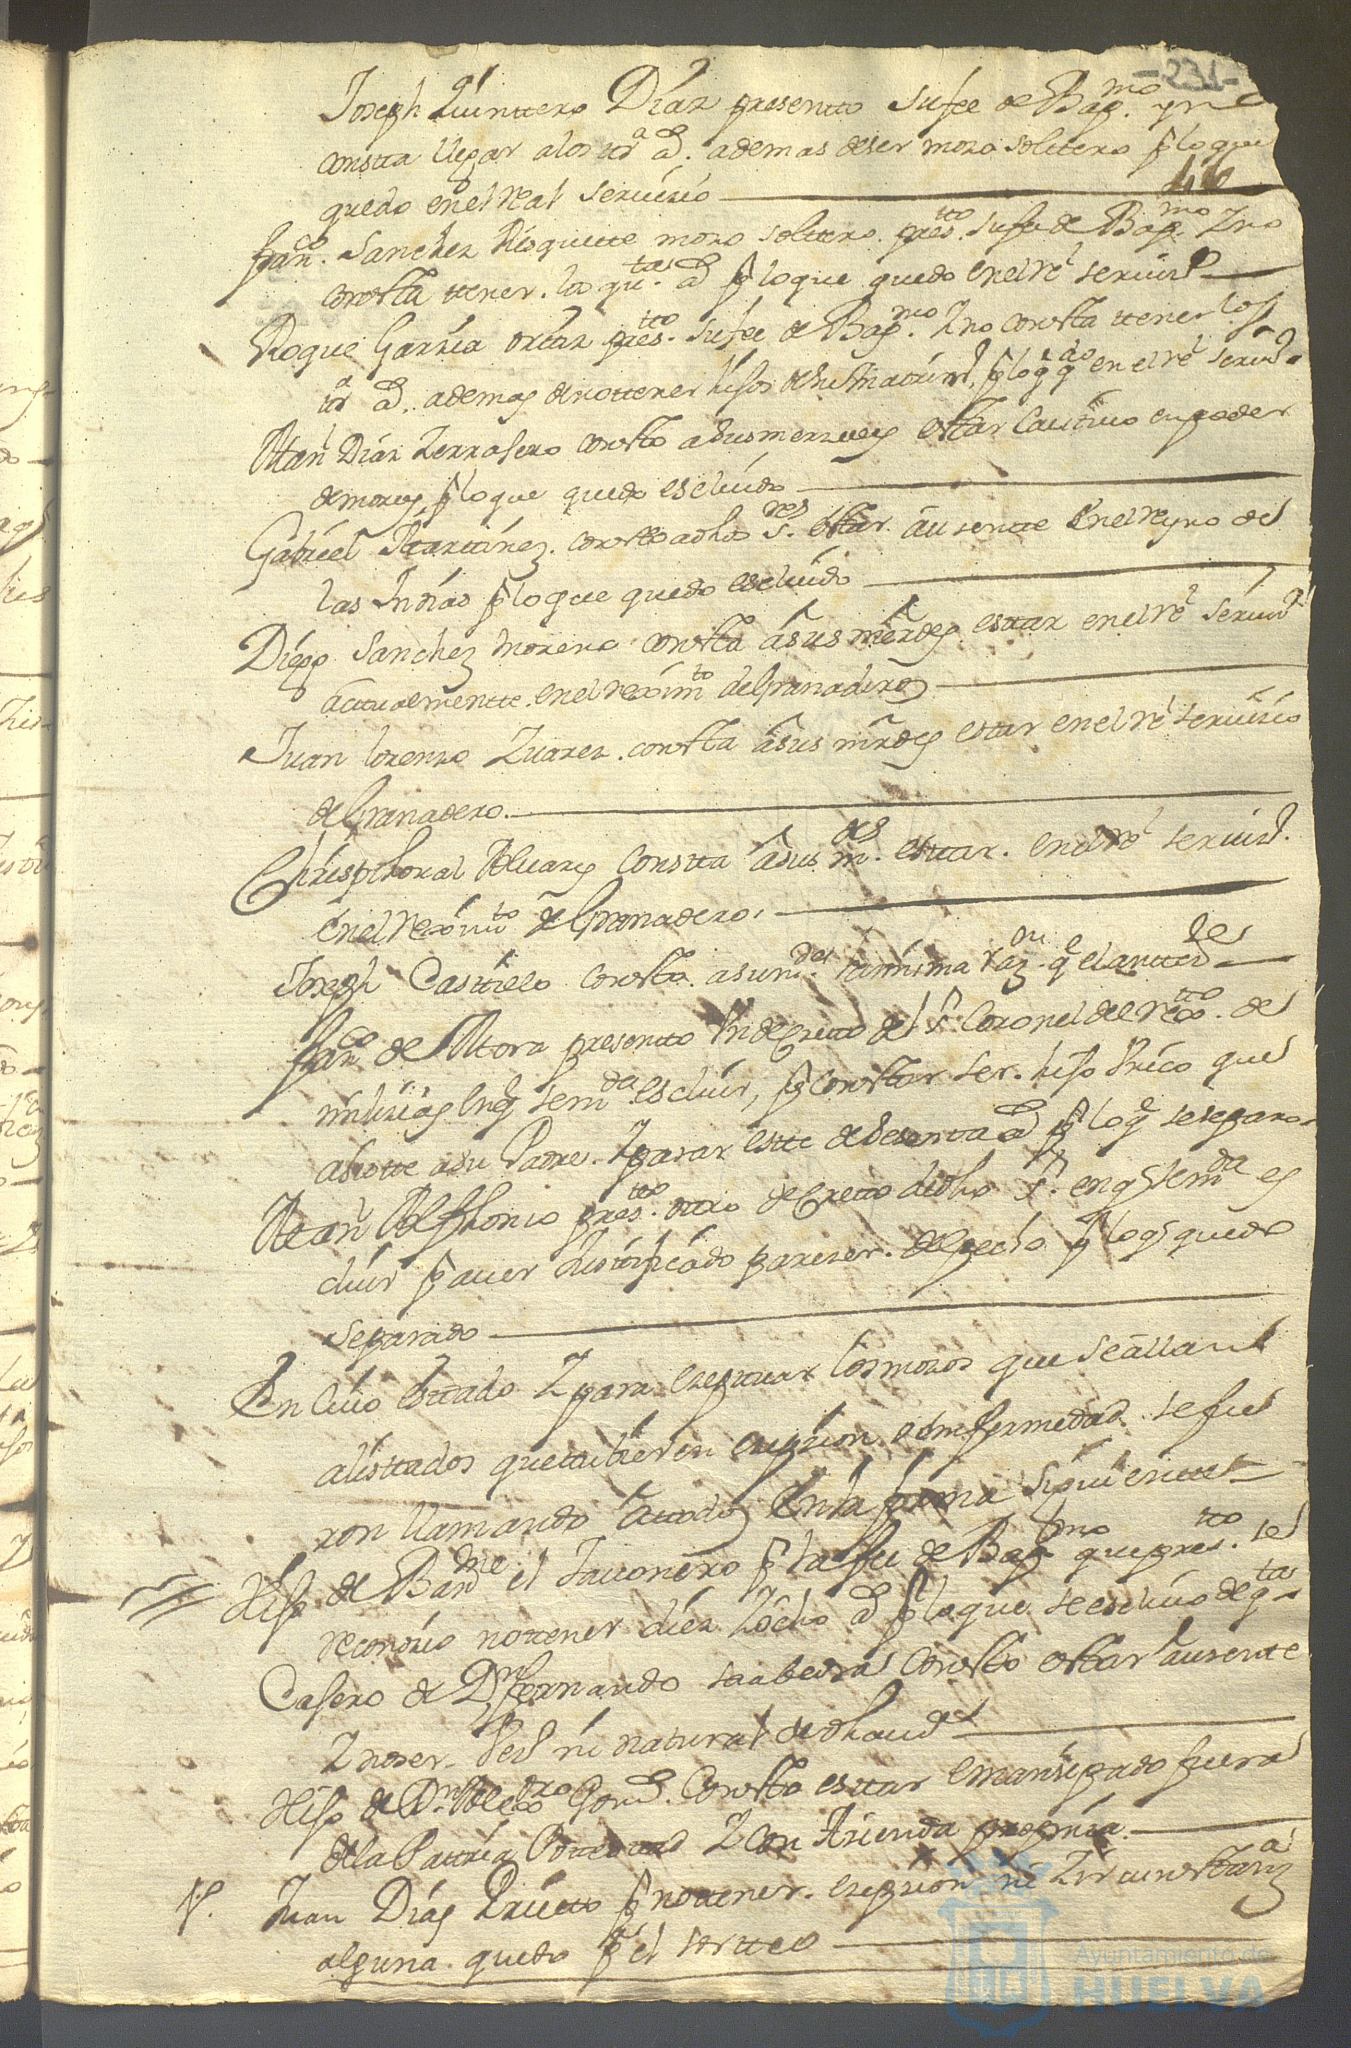 -231-
Joseph Quinttero Díaz presentto su fee de Bap.mo y no
consta llegar a los qr.ta a.s ademas de ser mozo solttero p.r lo que
quedo en el real servicio
46
Fran.co Sanchez Risquete mozo solttero pres.tto su fe de Bap.mo Y no
constta ttener los qu.tas a.s p.r lo que quedo en el rl servi.o
Roque Garzia ortiz pres.tto su fee de Bap.mo Y no constta ttener los
qr.ta a.s ademas de no ttener hijos de su Matrim.o p.r lo q.e q.do en el rl servi.o
Man.l Diaz Terrasero constto a sus merzedes esttar Cautivo en poder
de moros p.r lo que quedo escluido
Gabriel Martinez constto a dhos S.res esttar ausentte en el reyno de
las Indias p.r lo que quedo escluido
Diego Sanchez Moreno constta a sus merzdes esttar en el rl servi.o
actualmentte en el reximto de Granaderos
Juan Lorenzo Zuarez constta a sus mrzdes estar en el rl servicio
de Granadero
Christphoval Alvares constta a sus m.des esttar en el rl servi.o
en el reximto de Granadero
Joseph Casttillo constta a su m.des la misma raz.on q.e el antted.te
Fran.co de Mora presentto un decretto del S.r Coronel del rex.tto de
milizias en q.e se m.da escluir, p.r consttar ser hijo unico que
asiste a su Padre Y pasar estte de sesenta a.s p.r lo q.e se separo
Man.l Alfhonso pres.tto ottro decretto de dho S.r en q.e se m.da es
cluir p.r aver justtificado parezer del pecho p.r lo q.e quedo
separado
En cuio esttado Y para exeptuar los mozos que se allan
alisttados que tubieren exepzion o enfermedad se fue
ron llamando a ttodos en la forma siguientte
Hijo de Bar.me el Tavonero p.r la fee de Bap.mo que pres.tto se
reconozio no ttener diez Y ocho a.s p.r lo que se escluio de q.tas
Casero de D.n Fernando Saabedra constto esttar ausente
Y no ser Vez.o ni natural de dha ciud.
Hijo de D.n Alexo Gonz. constto esttar emansipado fuera
de la Pattria Pottestad Y con Azienda propria
V.
Juan Dias Prietto p.r no ttener exepzion ni Zircunsttanz.a
alguna quedo p.a el sortteo
Ayuntamiento de
HUELVA